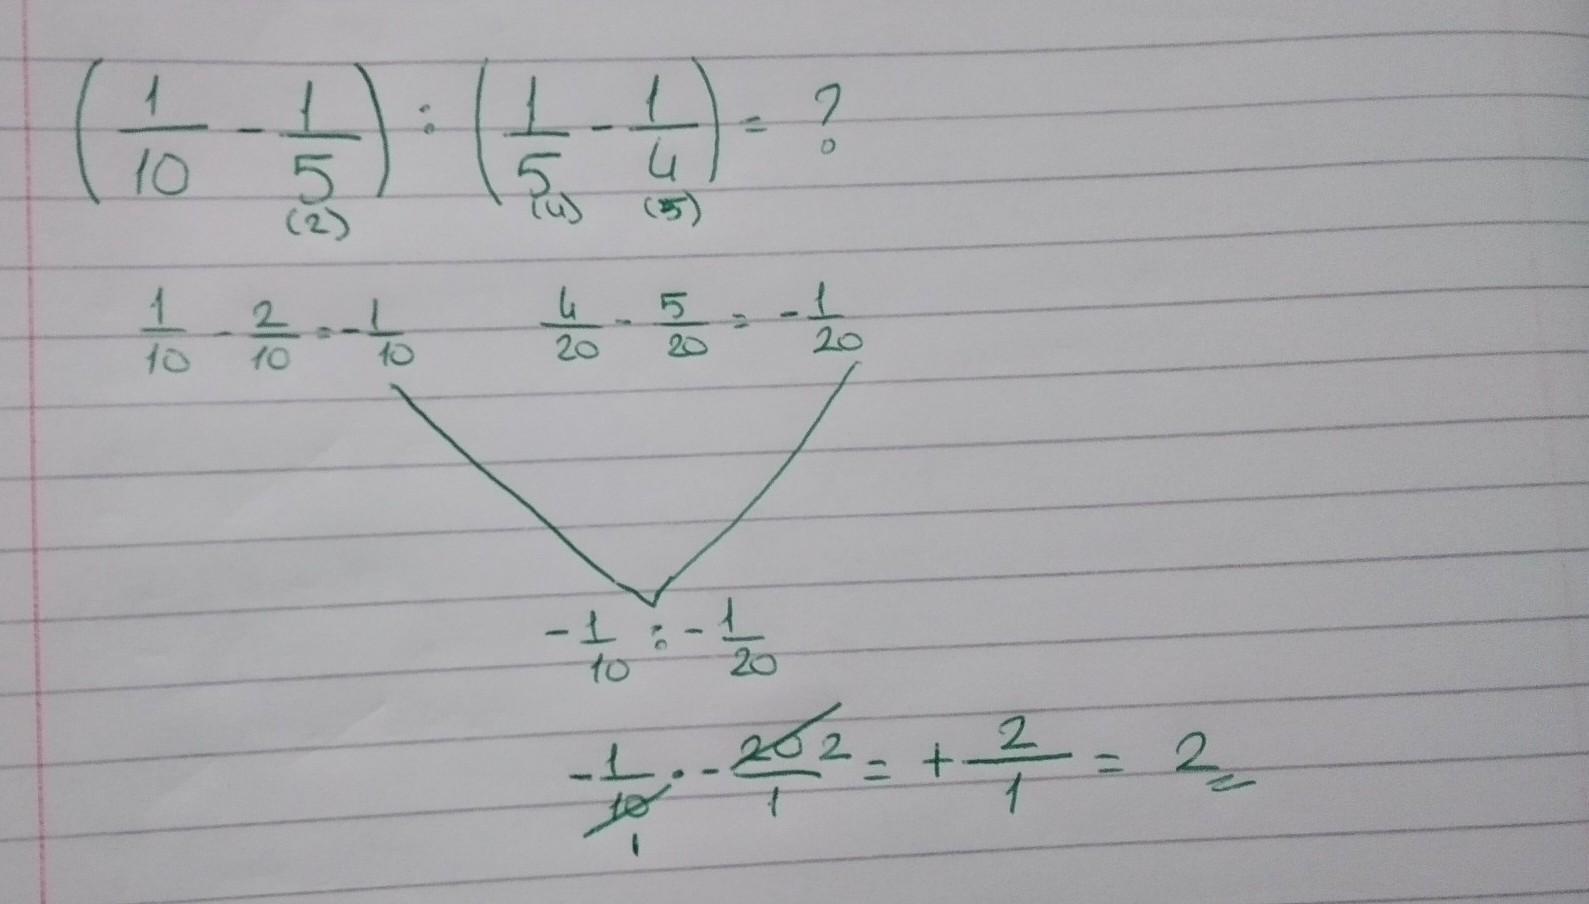 (1/10 - 1/5) : (1/5 - 1/4) = ?
(2) (4) (5)
1/10 - 2/10 = -1/10 4/20 - 5/20 = -1/20
-1/10 : -1/20
-1/10 1 · -20 2/1 = +2/1 = 2